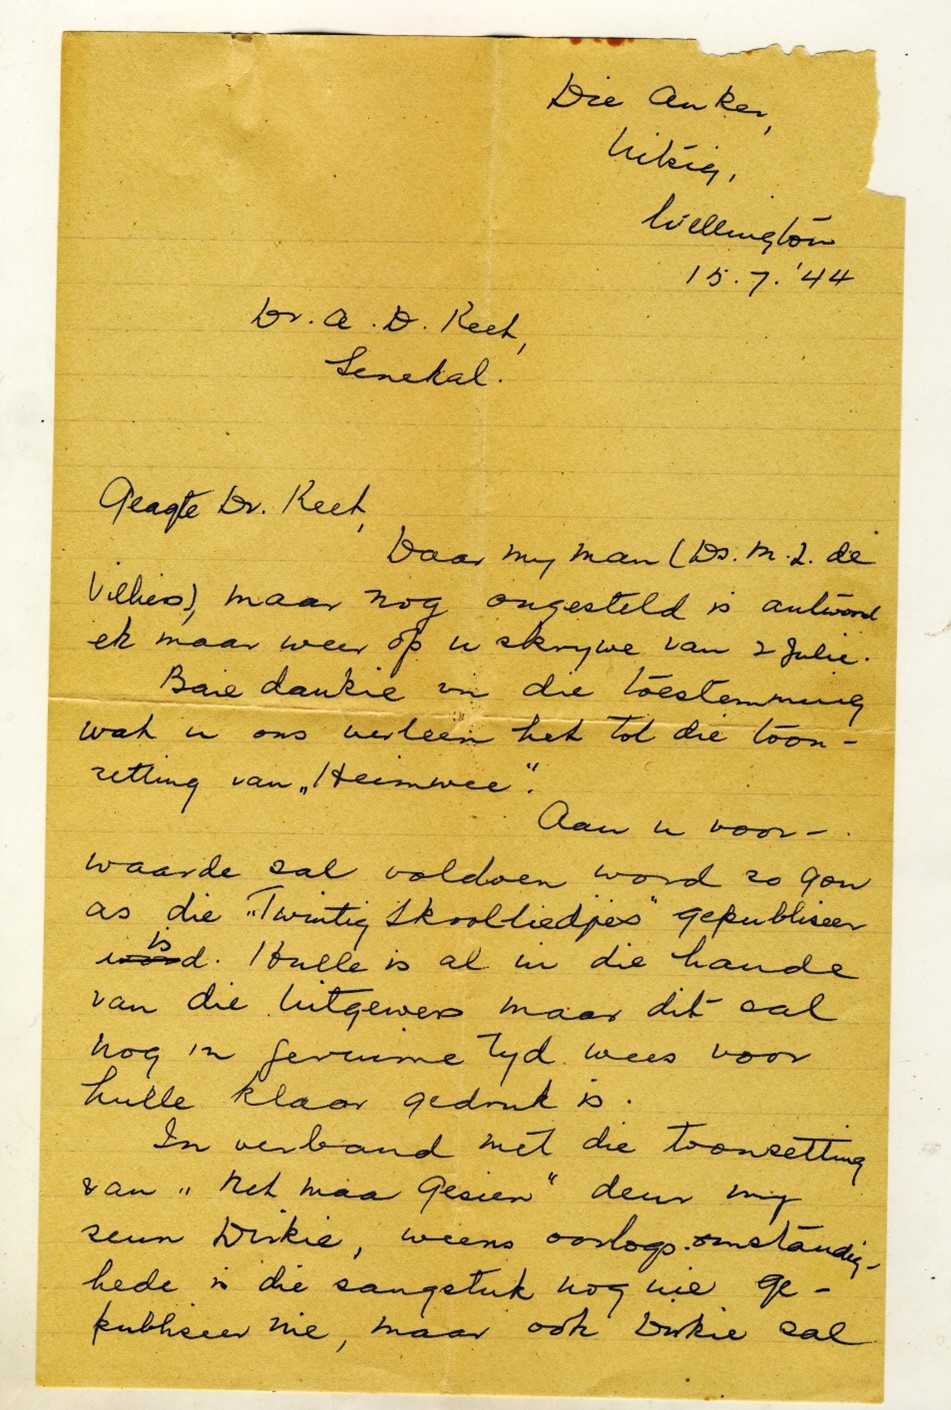 Die Anker,
Uitsig,
Wellington
15.7.'44
Dr. A. D. Keet,
Senekal.
Geagte Dr. Keet,
Daar my man (Ds. M. L. de
Villiers), maar nog ongesteld is antwoord
ek maar weer op u skrywe van 2 Julie.
Baie dankie vir die toestemming
wat u ons verleen het tot die toon-
setting van „Heimwee".
Aan u voor-
waarde sal voldoen word so gou
as die „Twintig Skoolliedjies" gepubliseer
is. Hulle is al in die hande
van die Uitgewers maar dit sal
nog 'n geruime tyd wees voor
hulle klaar gedruk is.
In verband met die toonsetting
van „Net maa Gesien" deur my
seun Dirkie, weens oorlogs-omstandig-
hede is die sangstuk nog nie ge-
publiseer nie, maar ook Dirkie sal